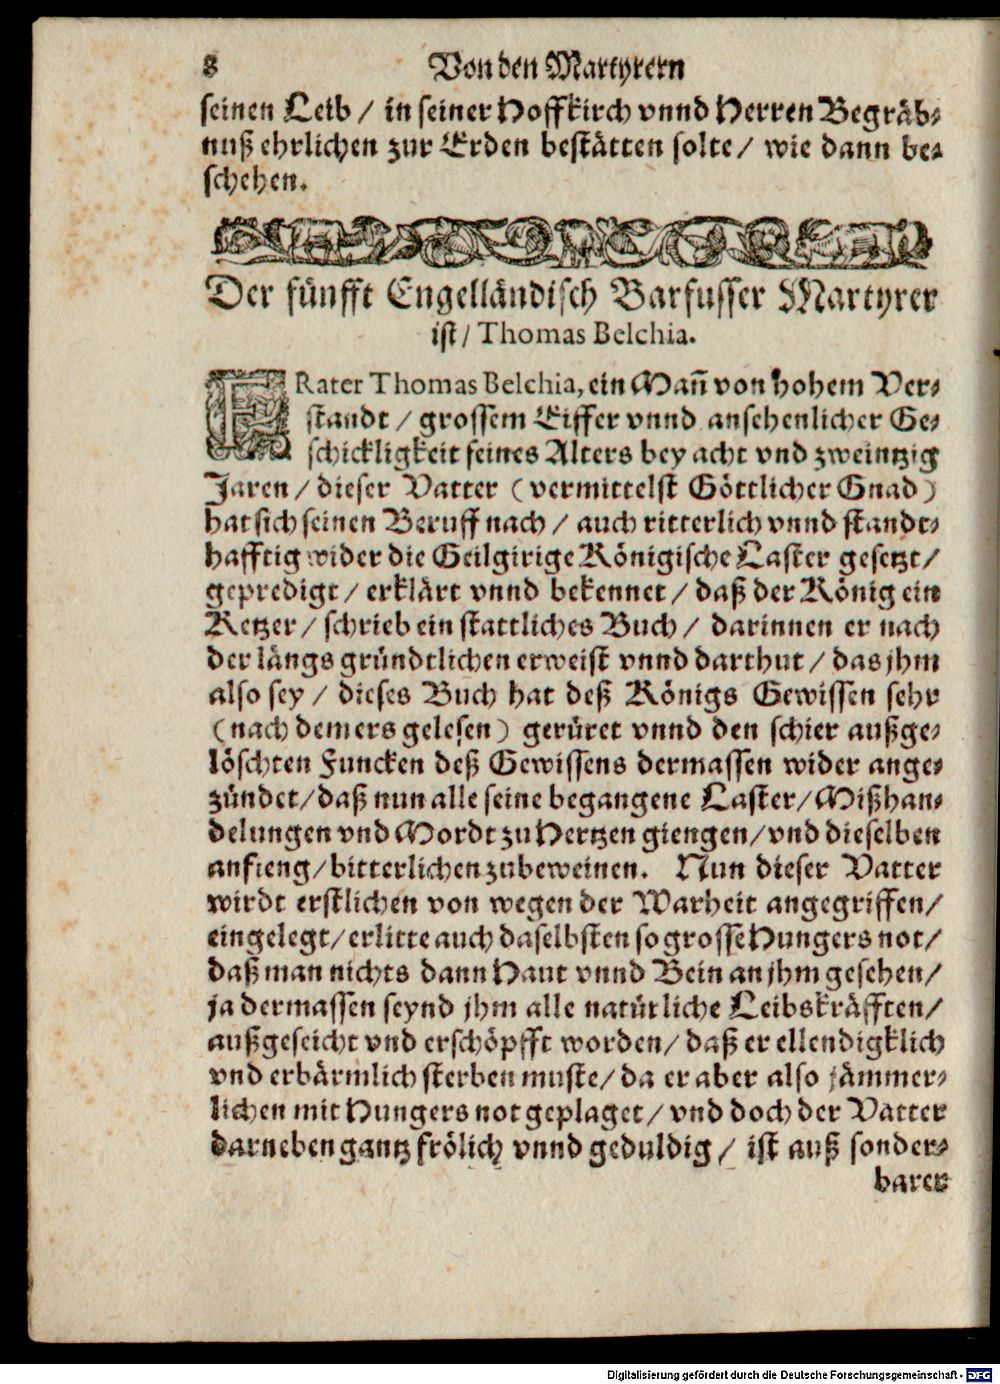 8 Von den Martyrern
seinen Leib / in seiner Hoffkirch vnnd Herren Begräb-
nuß ehrlichen zur Erden bestätten solte / wie dann be-
schehen.
Der fünfft Engelländisch Barfusser Martyrer
ist / Thomas Belchia.
FRater Thomas Belchia, ein Mañ von hohem Ver-
standt / grossem Eiffer vnnd ansehenlicher Ge-
schickligkeit seines Alters bey acht vnd zweintzig
Jaren / dieser Vatter (vermittelst Göttlicher Gnad)
hat sich seinen Beruff nach / auch ritterlich vnnd standt-
hafftig wider die Geilgirige Königische Laster gesetzt /
gepredigt / erklärt vnnd bekennet / daß der König ein
Ketzer / schrieb ein stattliches Buch / darinnen er nach
der längs gründtlichen erweist vnnd darthut / das jhm
also sey / dieses Buch hat deß Königs Gewissen sehr
(nach dem ers gelesen) gerüret vnnd den schier außge-
löschten Funcken deß Gewissens dermassen wider ange-
zündet / daß nun alle seine begangene Laster / Mißhan-
delungen vnd Mordt zu Hertzen giengen / vnd dieselben
anfieng / bitterlichen zubeweinen. Nun dieser Vatter
wirdt erstlichen von wegen der Warheit angegriffen /
eingelegt / erlitte auch daselbsten so grosse Hungers not /
daß man nichts dann Haut vnnd Bein an jhm gesehen /
ja dermassen seynd jhm alle natürliche Leibskräfften /
außgeseicht vnd erschöpfft worden / daß er ellendigklich
vnd erbärmlich sterben muste / da er aber also jämmer-
lichen mit Hungers not geplaget / vnd doch der Vatter
darneben gantz frölich vnnd geduldig / ist auß sonder-
barer
Digitalisierung gefördert durch die Deutsche Forschungsgemeinschaft - DFG